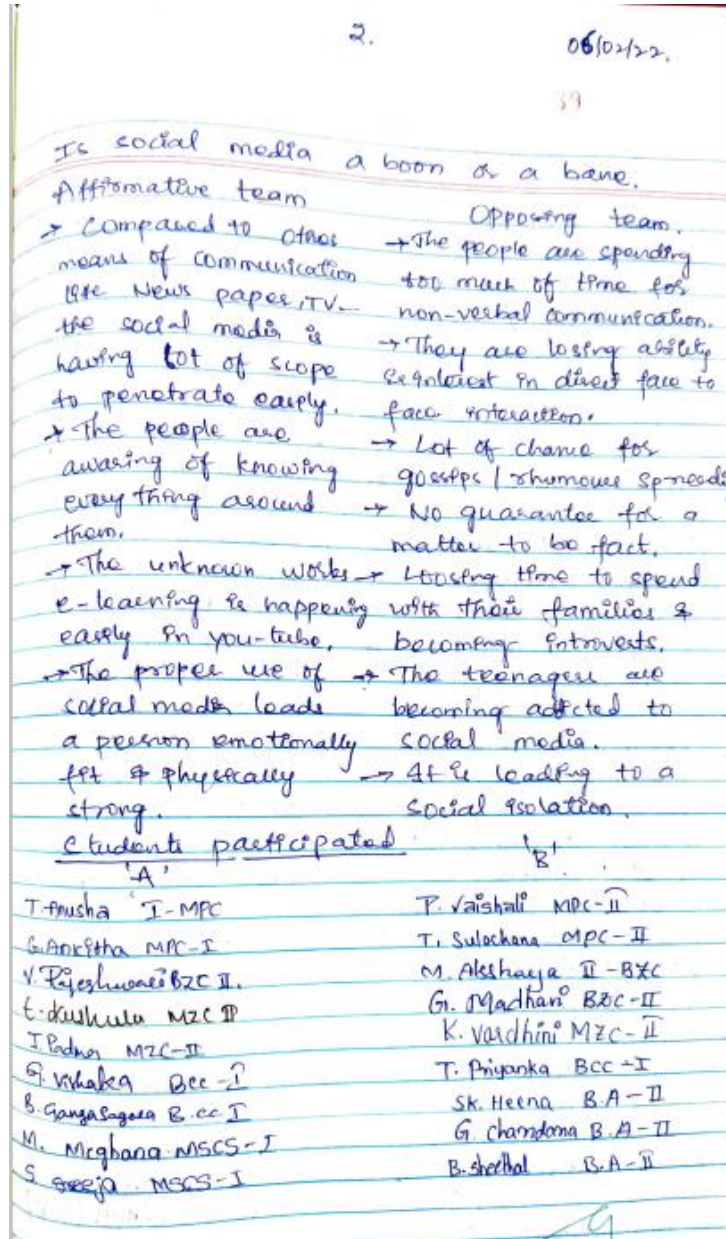 2.
06/02/22.
39
Is social media a boon or a bane.
Affirmative team
→ Compared to other
means of communication
like News paper, TV...
the social media is
having lot of scope
to penetrate easily.
→ The people are
awaring of knowing
every thing around
them.
→ The unknown works
e-learning is happening
easily in you-tube.
→ The proper use of
social media leads
a person emotionally
fit & physically
strong.
Opposing team.
→ The people are spending
too much of time for
non-verbal communication.
→ They are losing ability
& interest in direct face to
face interaction.
→ Lot of chance for
gossips / rhumour spreadi
→ No guarantee for a
matter to be fact.
→ Loosing time to spend
with their families &
becoming introverts.
→ The teenagers are
becoming addicted to
social media.
→ It is leading to a
social isolation.
Students participated
'A'
T. Anusha I-MPC
G. Ankitha MPC-I
V. Rajeshwari BZC II.
MZC II
I. Padma MZC-II
G. Vishaka BCC-I
B. Ganga Sagara B.CC I
M. Meghana MSCS-I
S. Sreeja MSCS-I
'B'
P. Vaishali MPC-II
T. Sulochana MPC-II
M. Akshaya II-BZC
G. Madhavi BZC-II
K. Vardhini MZC-II
T. Priyanka BCC-I
SK. Heena B.A-II
G. Chandana B.A-II
B. Sheethal B.A-II